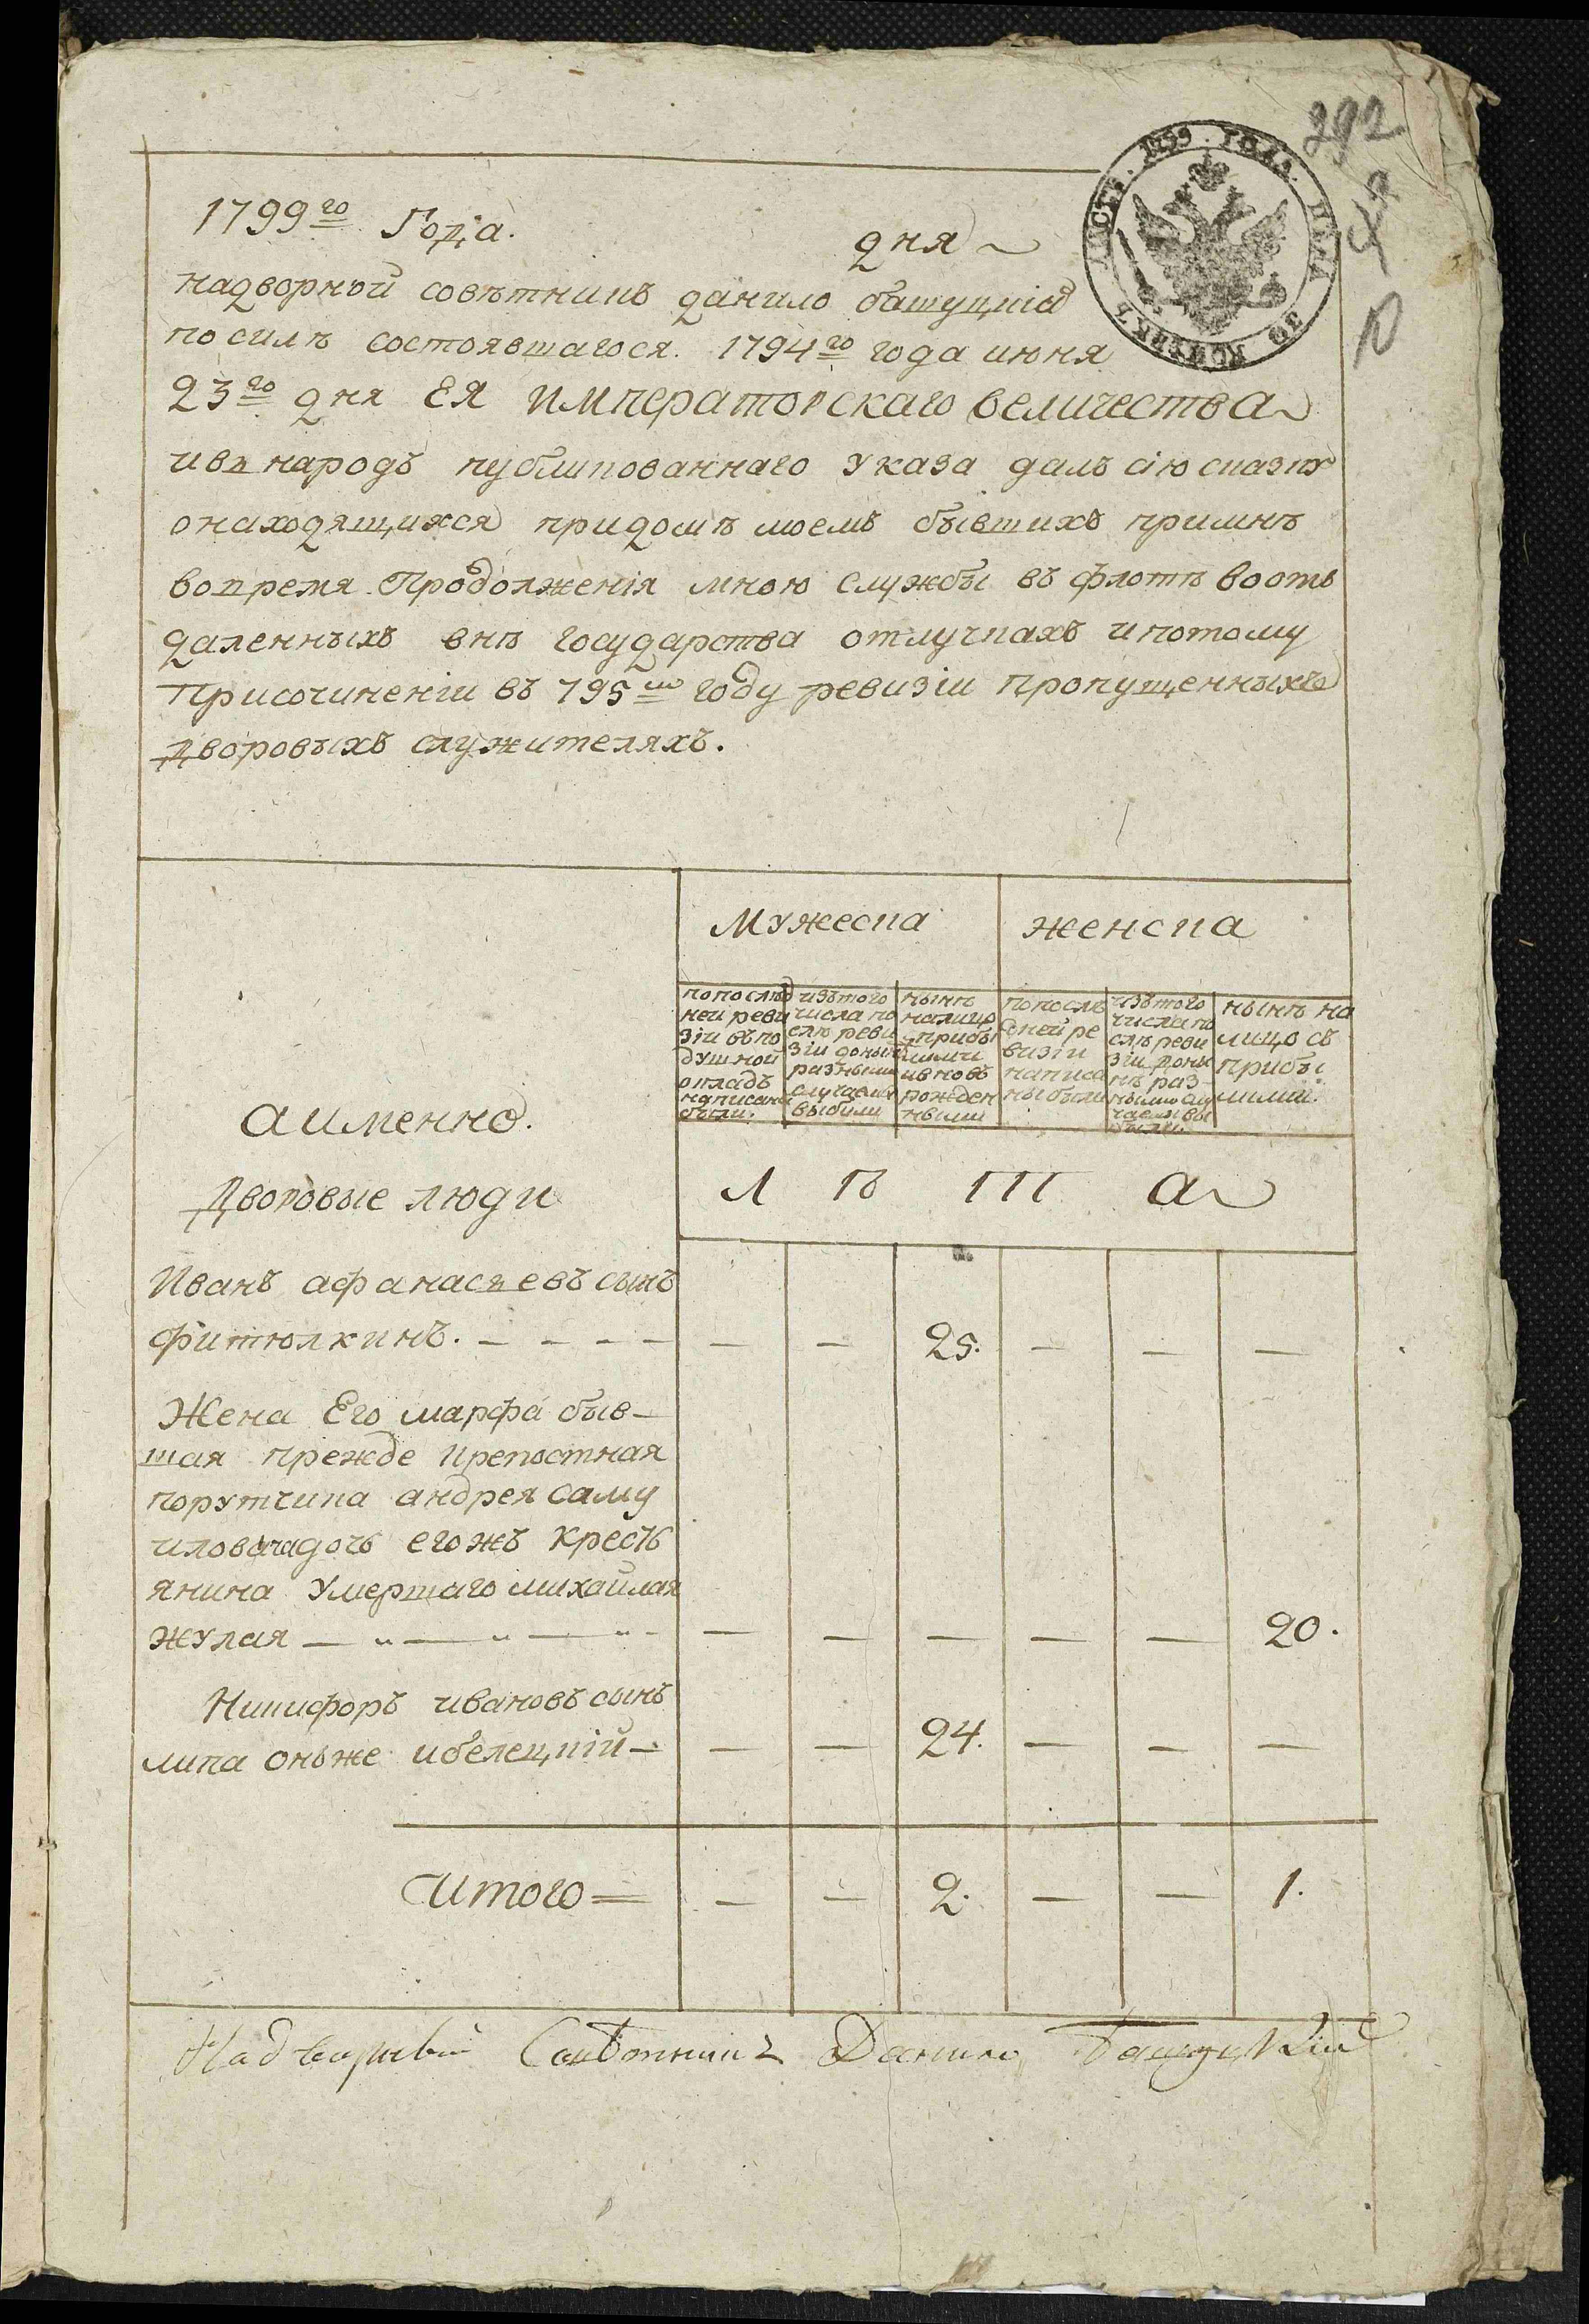 292
ЛИСТЪ. 1799. ГОДА. ЦѢНА 30 КОПѢЕКЪ
1799го Года.
дня
надворный совѣтникъ данило башуцкій
по силѣ состоявшагося. 1794го года июня
23го дня ЕЯ императорскаго величества
ивъ народъ публикованнаго указа далъ сію сказку
онаходящихся придомѣ моемъ бывшихъ примнѣ
вовремя Продолженія мною службы въ флотѣ воотъ
даленныхъ внѣ государства отлучкахъ ипотому
Присочиненіи въ 795м году ревизіи пропущенныхъ
дворовыхъ служителяхъ.
мужеска женска
попослѣд
ней реви
зіи въпо
душной
окладъ
написаны
были.
изътого
числа по
слѣ реви
зіи донынѣ
разными
случаями
выбыли
нынѣ
налицо
съприбы
лыми
ивновь
рожден
ными
попослѣ
дней ре
визіи
написа
ны были
изътого
числа по
слѣ реви
зіи доны
нѣ раз
ными слу
чаями вы
были
нынѣ на
лицо съ
прибы
лыми.
аименно.
Дворовые люди
Л ѣ т а
Иванъ афанасьевъ сынъ
фитюлкинъ. — — — — — — 25. — — —
Жена Его марфа быв-
шая прежде крепостная
порутчика андрея саму
иловача дочь егожъ кресть
янина умершаго михайлая
жулая — — — — — — — — 20.
Никифоръ ивановъ сынъ
липа оньже ибелецкій — — — 24. — — —
итого = — — 2. — — 1.
Надворный Совѣтникъ Данило Башуцкій